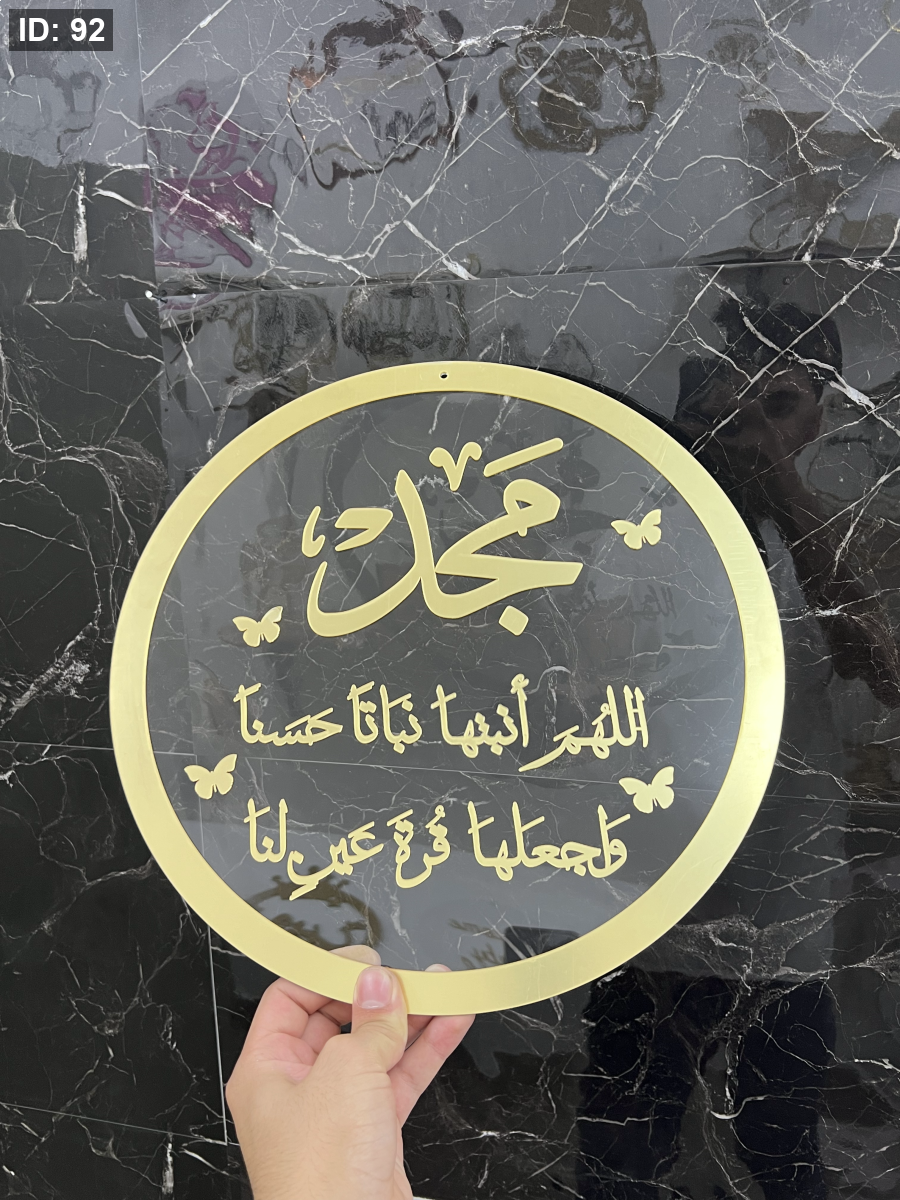 ID: 92
مَجْد
اللهُمَ أنبتها نَبَاتًا حَسَنا
وَاجعَلها قُرةَ عَينٍ لنَا